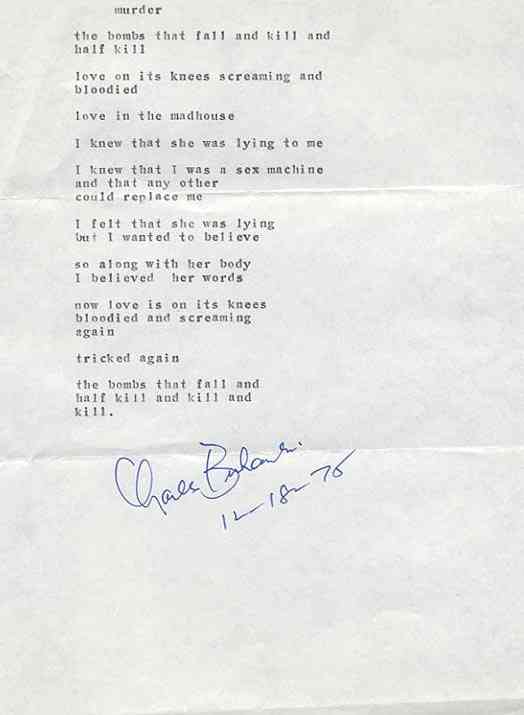 murder
the bombs that fall and kill and
half kill
love on its knees screaming and
bloodied
love in the madhouse
I knew that she was lying to me
I knew that I was a sex machine
and that any other
could replace me
I felt that she was lying
but I wanted to believe
so along with her body
I believed her words
now love is on its knees
bloodied and screaming
again
tricked again
the bombs that fall and
half kill and kill and
kill.
Charles Bukowski
12-18-75